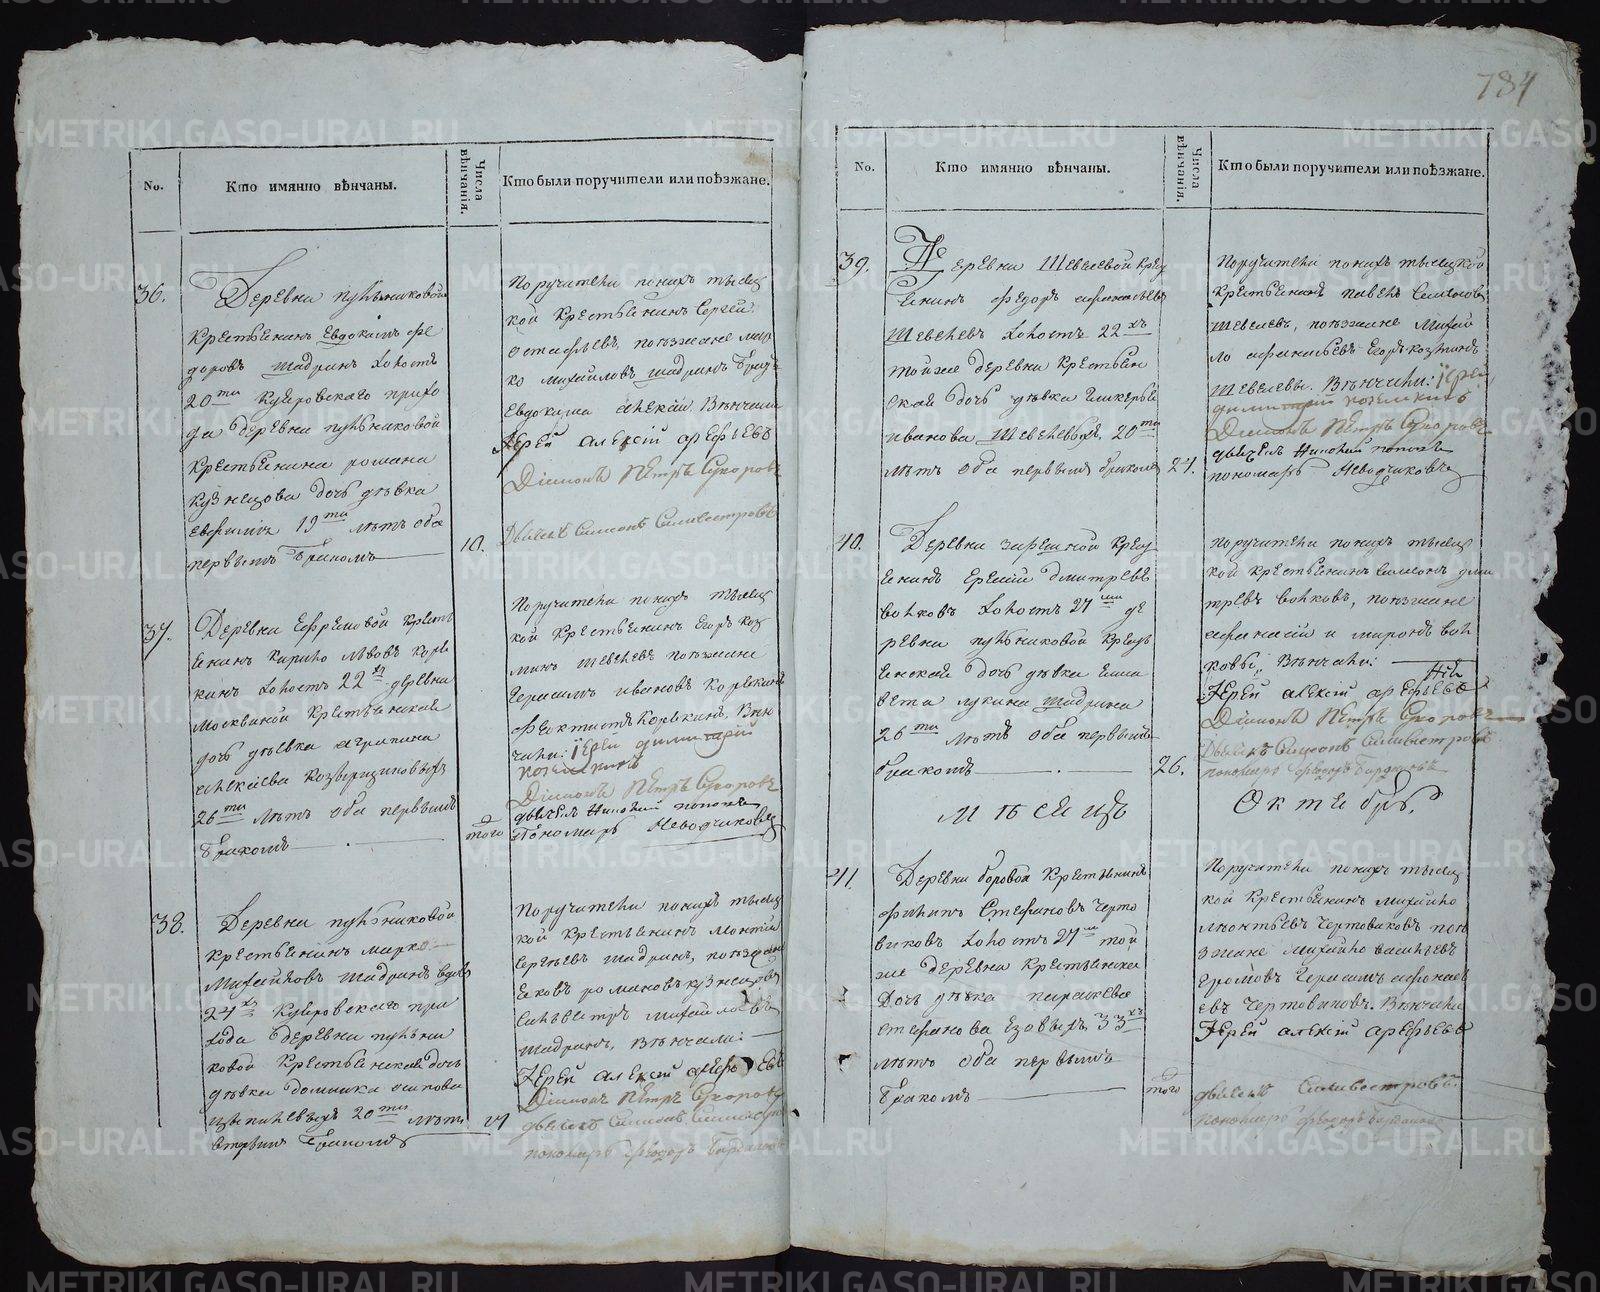 784
No.
Кто имянно вѣнчаны.
Числа вѣнчанія.
Кто были поручители или поѣзжане.
36.
Деревни пульниковой
Крестьянинъ Евдокимъ Фе
доровъ Шадринъ холостъ
20ти Куяровскаго прихо
да деревни пульниковой
Крестьянина романа
Кузнецова дочь дѣвка
19ти лѣтъ оба
первымъ бракомъ
10.
Поручители по нихъ тысяц
кой Крестьянинъ Сергей
Остафьевъ, поезжане мар
ко михайловъ шадринъ
Евдокима алексій Вѣнчали
Іерей алексій арефьевъ
Діаконъ Петръ Сухоровъ
Дьячекъ Симеонъ Силивестровъ
37.
Деревни Ефремовой Крестья
нинъ Кирило Львовъ Коря
кинъ холостъ 22хъ деревни
Москвиной Крестьянская
дочь дѣвка агрипина
алексѣева
26ти лѣтъ оба первымъ
бракомъ
того
Поручители по нихъ тысяц
кой Крестьянинъ Егоръ коз
минъ шевелевъ поезжане
Герасимъ ивановъ Корякинъ
Феоктистъ Корякинъ, Вѣн
чали: Іерей димитрій
Діаконъ Петръ Сухоровъ
дьячекъ Николай поповъ
Пономарь Неводчиковъ
38.
Деревни пульниковой
Крестьянинъ марко
Михайловъ шадринъ вдовъ
24хъ Куяровскаго при
хода деревни пульни
ковой Крестьянская дочь
дѣвка домника осипова
20ти лѣтъ
вторымъ бракомъ
Поручители по нихъ тысяц
кой Крестьянинъ
Сергѣевъ шадринъ, поезжане
Яковъ романовъ кузнецовъ
Сильвестръ михайловъ
шадринъ, вѣнчали:
Іерей алексій арефьевъ
Діаконъ Петръ Сухоровъ
дьячекъ Симеонъ
пономарь Феодоръ
No.
Кто имянно вѣнчаны.
Числа вѣнчанія.
Кто были поручители или поѣзжане.
39.
Деревни Шевелевой Крест
янинъ Федоръ афанасьевъ
Шевелевъ холостъ 22хъ
той же деревни Крестьян
ская дочь дѣвка гликерья
иванова Шевелевыхъ 20ти
лѣтъ оба первымъ бракомъ
24.
Поручители по нихъ тысяцкой
Крестьянинъ павелъ
Шевелевъ, поезжане Михай
ло афанасьевъ Егоръ козминъ
Шевелевы. Вѣнчали: Іерей
димитрій
Діаконъ Петръ Сухоровъ
дьячекъ Николай поповъ
пономарь Неводчиковъ
40.
Деревни зырянской Крест
янинъ Еремій дмитревъ
волковъ холостъ 27ми де
ревни пульниковой Кресть
янская дочь дѣвка елиса
вета лукина шадрина
26ти лѣтъ оба первымъ
бракомъ
26.
Поручители по нихъ тысяц
кой крестьянинъ Симеонъ дми
тревъ волковъ, поезжане
афанасій и миронъ вол
ковы, Вѣнчали:
Іерей алексій арефьевъ
Діаконъ Петръ Сухоровъ
Дьячекъ Симеонъ Силивестровъ
пономарь Феодоръ
Мѣсяцъ Октябрь
41.
Деревни боровой Крестьянинъ
филипъ Стефановъ Черто
виковъ холостъ 27ми той
же деревни Крестьянска
дочь дѣвка параскева
стефанова Езовыхъ 33хъ
лѣтъ оба первымъ
бракомъ
того
Поручители по нихъ тысяц
кой Крестьянинъ михайло
леонтьевъ Чертовиковъ пое
зжане михайло васильевъ
Герасимъ афонась
евъ Чертовиковъ. Вѣнчали
Іерей алексій арефьевъ
дьячекъ Силивестровъ
пономарь Феодоръ